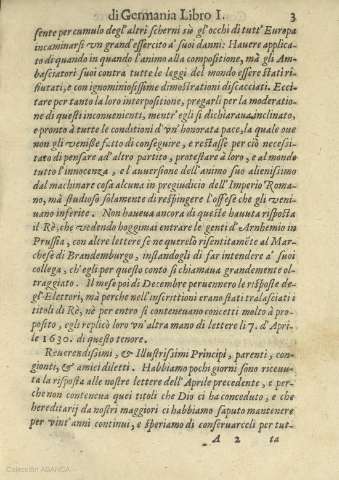 di Germania Libro I. 3
sente per cumulo degl'altri scherni siò gl'occhi di tutt' Europa
incaminarsi vn grand'essercito a' suoi danni: Hauere applica-
to di quando in quando l'animo alla compositione, mà gli Am-
basciatori suoi contra tutte le leggi del mondo essere stati ri-
fiutati, e con ignominiosissime dimostrationi discacciati. Ecci-
tare per tanto la loro interpositione, pregarli per la moderatio-
ne di questi inconuenienti, mentr'egli si dichiaraua inclinato,
e pronto à tutte le conditioni d'vn'honorata pace, la quale oue
non gli venisse fatto di conseguire, e restasse per ciò necessi-
tato di pensare ad altro partito, protestare à loro, e al mondo
tutto l'innocenza, e l'auersione dell'animo suo alienissimo
dal machinare cosa alcuna in pregiudicio dell'Imperio Roma-
no, mà studioso solamente di respingere l'offese che gli veni-
uano inferite. Non haueua ancora di queste hauuta risposta
il Rè, che vedendo hoggimai entrare le genti d'Arnhemio in
Prussia, con altre lettere se ne querelò risentitamēte al Mar-
chese di Brandemburgo, instandogli di far intendere a' suoi
collega, ch'egli per questo conto si chiamaua grandemente ol-
traggiato. Il mese poi di Decembre peruennero le risposte de-
gl'Elettori, mà perche nell'inscrittioni erano stati tralasciati i
titoli di Rè, nè per entro si conteneuano concetti molto à pro-
posito, egli replicò loro vn'altra mano di lettere li 7. d'Apri-
le 1630. di questo tenore.
Reuerendissimi, & Illustrissimi Principi, parenti, con-
gionti, & amici diletti. Habbiamo pochi giorni sono riceuu-
ta la risposta alle nostre lettere dell'Aprile precedente, e per-
che non conteneua quei titoli che Dio ci ha conceduto, e che
hereditarij da nostri maggiori ci habbiamo saputo mantenere
per vint'anni continui, e speriamo di conseruarceli per tut-
A 2 ta
Colección ABANCA